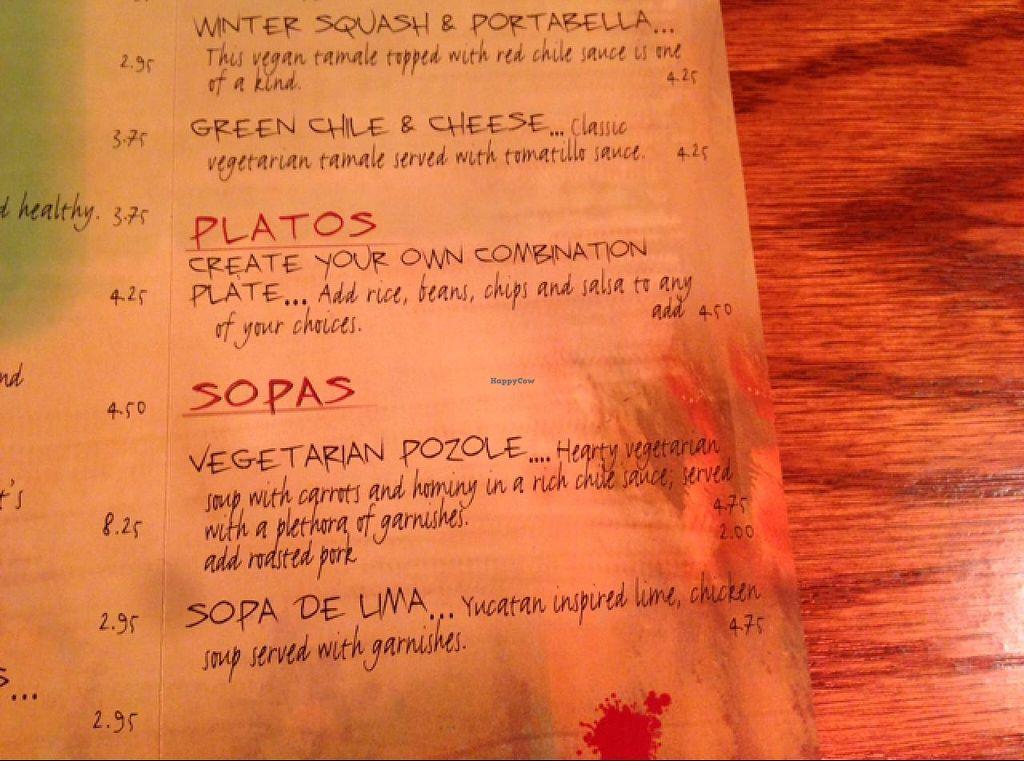 2.95
3.75
d healthy. 3.75
4.25
nd
4.50
t's
8.25
2.95
s...
2.95
WINTER SQUASH & PORTABELLA...
This vegan tamale topped with red chile sauce is one
of a kind. 4.25
GREEN CHILE & CHEESE... Classic
vegetarian tamale served with tomatillo sauce. 4.25
PLATOS
CREATE YOUR OWN COMBINATION
PLATE... Add rice, beans, chips and salsa to any
of your choices. add 4.50
SOPAS
HappyCow
VEGETARIAN POZOLE.... Hearty vegetarian
soup with carrots and hominy in a rich chile sauce; served
with a plethora of garnishes. 4.75
add roasted pork 2.00
SOPA DE LIMA... Yucatan inspired lime, chicken
soup served with garnishes. 4.75